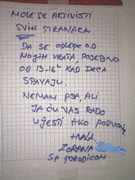 MOLE SE AKTIVISTI
SVIH STRANAKA
DA SE ODLEPE OD
MOJIH VRATA, POSEBNO
OD 13-16h KAD DECA
SPAVAJU.
NEMAM PSA, ALI
JA ĆU VAS RADO
UJESTI AKO POZVONITE
HVALA,
ZORANA
SA PORODICOM